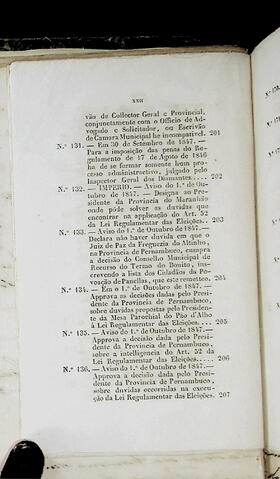 XXII
vão de Collector Geral e Provincial,
conjunctamente com o Officio de Ad-
vogado e Solicitador, ou Escrivão
de Camara Municipal he incompativel. 201
N.º 131. — Em 30 de Setembro de 1847. —
Para a imposição das penas do Re-
gulamento de 17 de Agosto de 1846
ha de se formar somente hum pro-
cesso administractivo, julgado pelo
Inspector Geral dos Diamantes.... 202
N.º 132. — IMPERIO. — Aviso do 1.º de Ou-
tubro de 1847. — Designa ao Pre-
sidente da Provincia do Maranhão
onde póde solver as duvidas que
encontrar na applicação do Art. 52
da Lei Regulamentar das Eleições. 203
N.º 133. — Aviso do 1.º de Outubro de 1847. —
Declara não haver duvida em que o
Juiz de Paz da Freguezia do Altinho,
na Provincia de Pernambuco, cumpra
a decisão do Conselho Municipal de
Recurso do Termo do Bonito, in-
cluindo a lista dos Cidadãos da Po-
voação de Panellas, que este remetteo. 204
N.º 134. — Em o 1.º de Outubro de 1847. —
Approva as decisões dadas pelo Presi-
dente da Provincia de Pernambuco,
sobre duvidas propostas pelo Presiden-
te da Mesa Parochial do Páo d'Alho
á Lei Regulamentar das Eleições... 205
N.º 135. — Aviso do 1.º de Outubro de 1847. —
Approva a decisão dada pelo Presi-
dente da Provincia de Pernambuco,
sobre a intelligencia do Art. 52 da
Lei Regulamentar das Eleições.... 206
N.º 136. — Aviso do 1.º de Outubro de 1847. —
Approva a decisão dada pelo Presi-
dente da Provincia de Pernambuco,
sobre duvidas occorridas na execu-
ção da Lei Regulamentar das Eleições. 207